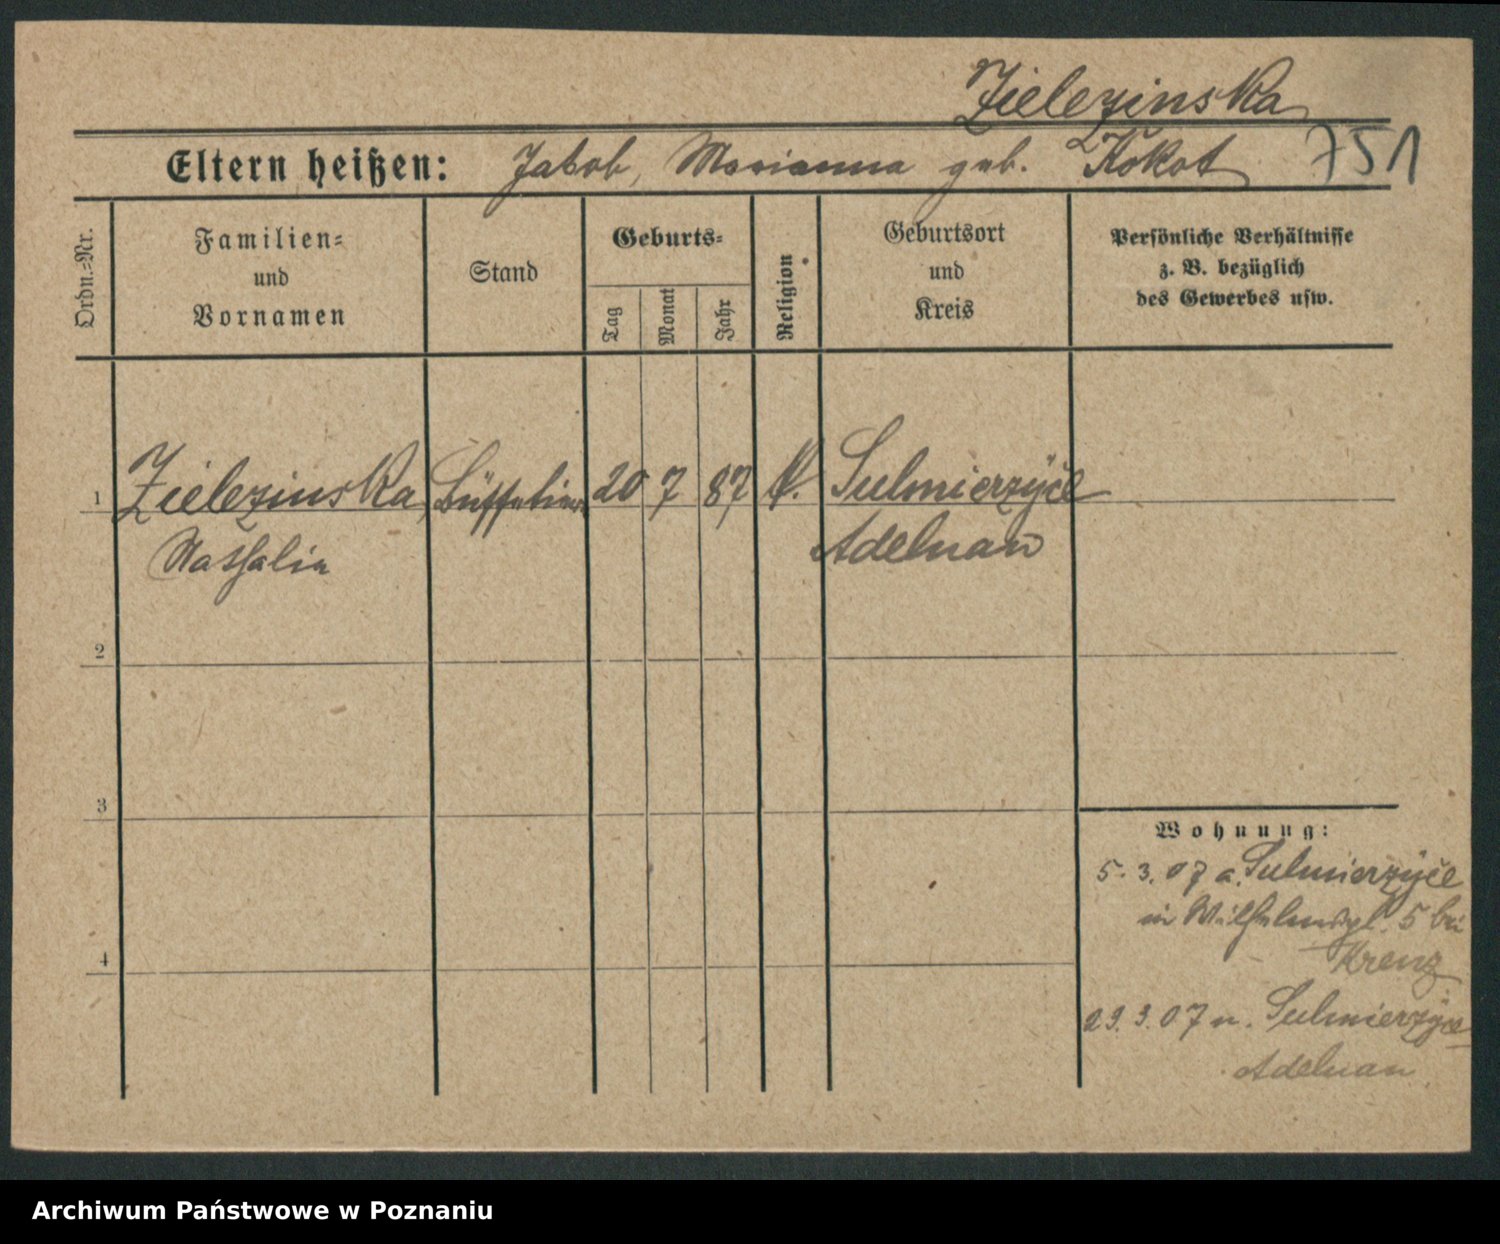 Zielezinska
Eltern heißen: Jakob, Marianna geb. Kokot 751
Ordn.=Nr.
Familien=
und
Vornamen
Stand
Geburts=
Tag
Monat
Jahr
Religion
Geburtsort
und
Kreis
Persönliche Verhältnisse
z. B. bezüglich
des Gewerbes usw.
1 Zielezinska, 20 7 87 K. Sulmierzÿce
Nathalia Adelnau
2
3
Wohnung:
5. 3. 07 a. Sulmierzÿce
in 5 bei
4
Krenz
29. 3. 07 n. Sulmierzÿce
Adelnau
Archiwum Państwowe w Poznaniu